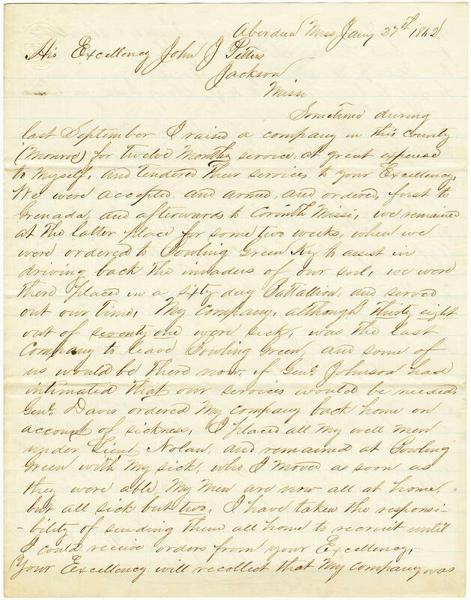 Aberdeen Miss Jany 27th 1862
His Excellency John J Pettus
Jackson
Miss
Sometime during
last September I raised a company in this County
(Monroe) for twelve Months service, at great expense
to myself, and tendered their services to your Excellency,
We were accepted and armed, and ordered, first to
Grenada, and afterwards to Corinth Missi, we remained
at the latter place for some two weeks, when we
were ordered to Bowling Green Ky to assist in
driving back the invaders of our soil, we were
there placed in a sixty day Battallion, and served
out our time, My company, although thirty eight
out of seventy one were sick, was the last
Company to leave Bowling Green, and some of
us would be there now, if Genl Johnson had
intimated that our services would be needed
Genl. Davis ordered my company back home on
account of sickness, I placed all my well men
under Lieut. Nolan, and remained at Bowling
Green with my sick, who I moved as soon as
they were able, My men are now all at home,
but all sick but two, I have taken the responsi-
-bility of sending them all home to recruit until
I could receive orders from your Excellency,
Your Excellency will recollect that my company was